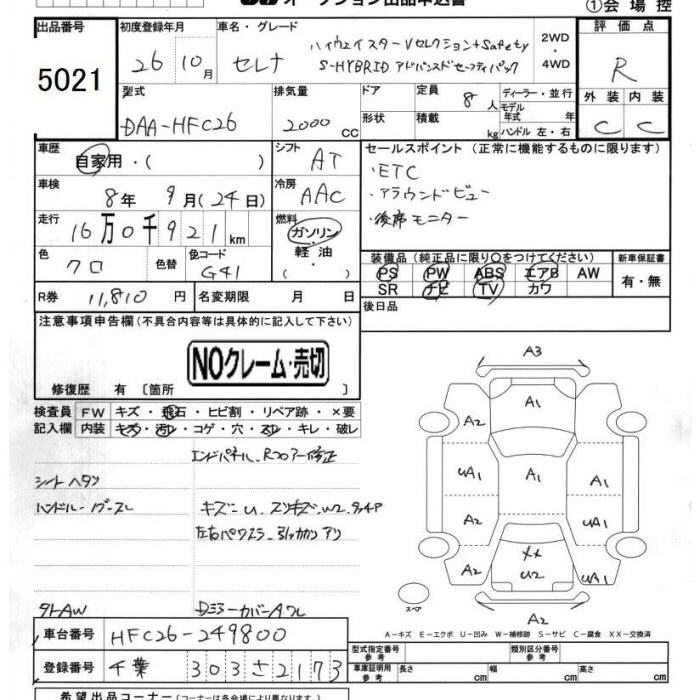 オークション出品申込書
①会場控
出品番号
5021
初度登録年月
26 10月
車名・グレード
セレナ
ハイウェイスターVセレクション+Safety
S-HYBRID アドバンスドセーフティパック
2WD
・
4WD
評価点
R
外装 内装
C C
型式
DAA-HFC26
排気量
2000 cc
ドア
形状
定員 8人
積載 kg
ディーラー・並行
モデル
年式 年
ハンドル 左・右
車歴
自家用・( )
シフト AT
車検
8年 9月(24日)
冷房 AAC
走行
16万0千921km
燃料
ガソリン
軽油
・( )
色 クロ
色替
色コード G41
R券 11,810円
名変期限 月 日
セールスポイント(正常に機能するものに限ります)
・ETC
・アラウンドビュー
・後席モニター
装備品(純正品に限り○をつけてください)
PS PW ABS エアB AW
SR ナビ TV カワ
新車保証書
有・無
後日品
注意事項申告欄(不具合内容等は具体的に記入して下さい)
NOクレーム・売切
修復歴 有 〔箇所 〕
検査員
記入欄
FW キズ・飛石・ヒビ割・リペア跡・×要
内装 キズ・汚レ・コゲ・穴・スレ・キレ・破レ
エンドパネル、Rフロアー修正
シートヘタリ
ハンドル・
キズ
左右パワスラ、引ッカカリアリ
タトAW
DミラーカバーAワレ
A3
A1
A2
UA1
A1
A1
A2
UA1
A2
XX
U2
UA1
A2
スペア
A−キズ E−エクボ U−凹み W−補修跡 S−サビ C−腐食 XX−交換済
車台番号 HFC26-249800
登録番号 千葉 303 さ 2173
型式指定番号
参考
類別区分番号
参考
車庫証明用
参考
長さ cm 幅 cm 高さ cm
希望出品コーナー(コーナーは各会場により異なります)